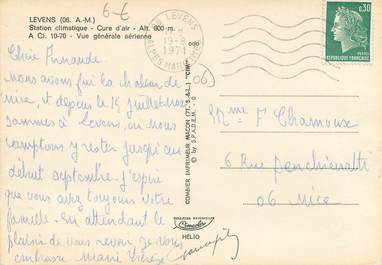 LEVENS (06. A.-M.)
Station climatique - Cure d'air - Alt. 600 m.
A. Ci. 10-70 - Vue générale aérienne
6-6
06 LEVENS
1971
0,30
REPUBLIQUE FRANÇAISE
Chère Fernande
nous avons fui la chaleur de
Nice, et depuis le 15 juillet nous
sommes à Levens, où nous
comptons y rester jusqu'au
début septembre. J'espère
que vous avez toujours votre
famille. En attendant le
plaisir de vous revoir je vous
embrasse Marie Thérèse
COMBIER IMPRIMEUR MACON (71. S.-&-L.) "CIM"
© by S.P.A.D.E.M.
Combier
HÉLIO
Mme F Chamoux
6 Rue Penchienatti
06 Nice